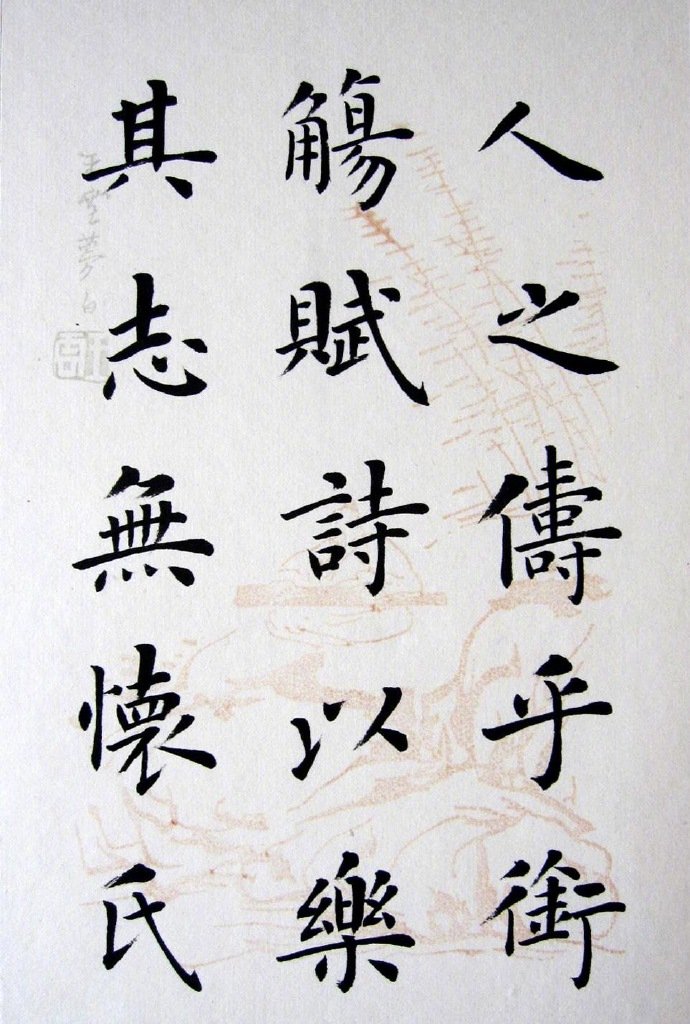 人之儔乎銜
觴賦詩以樂
其志無懷氏
王雲夢白